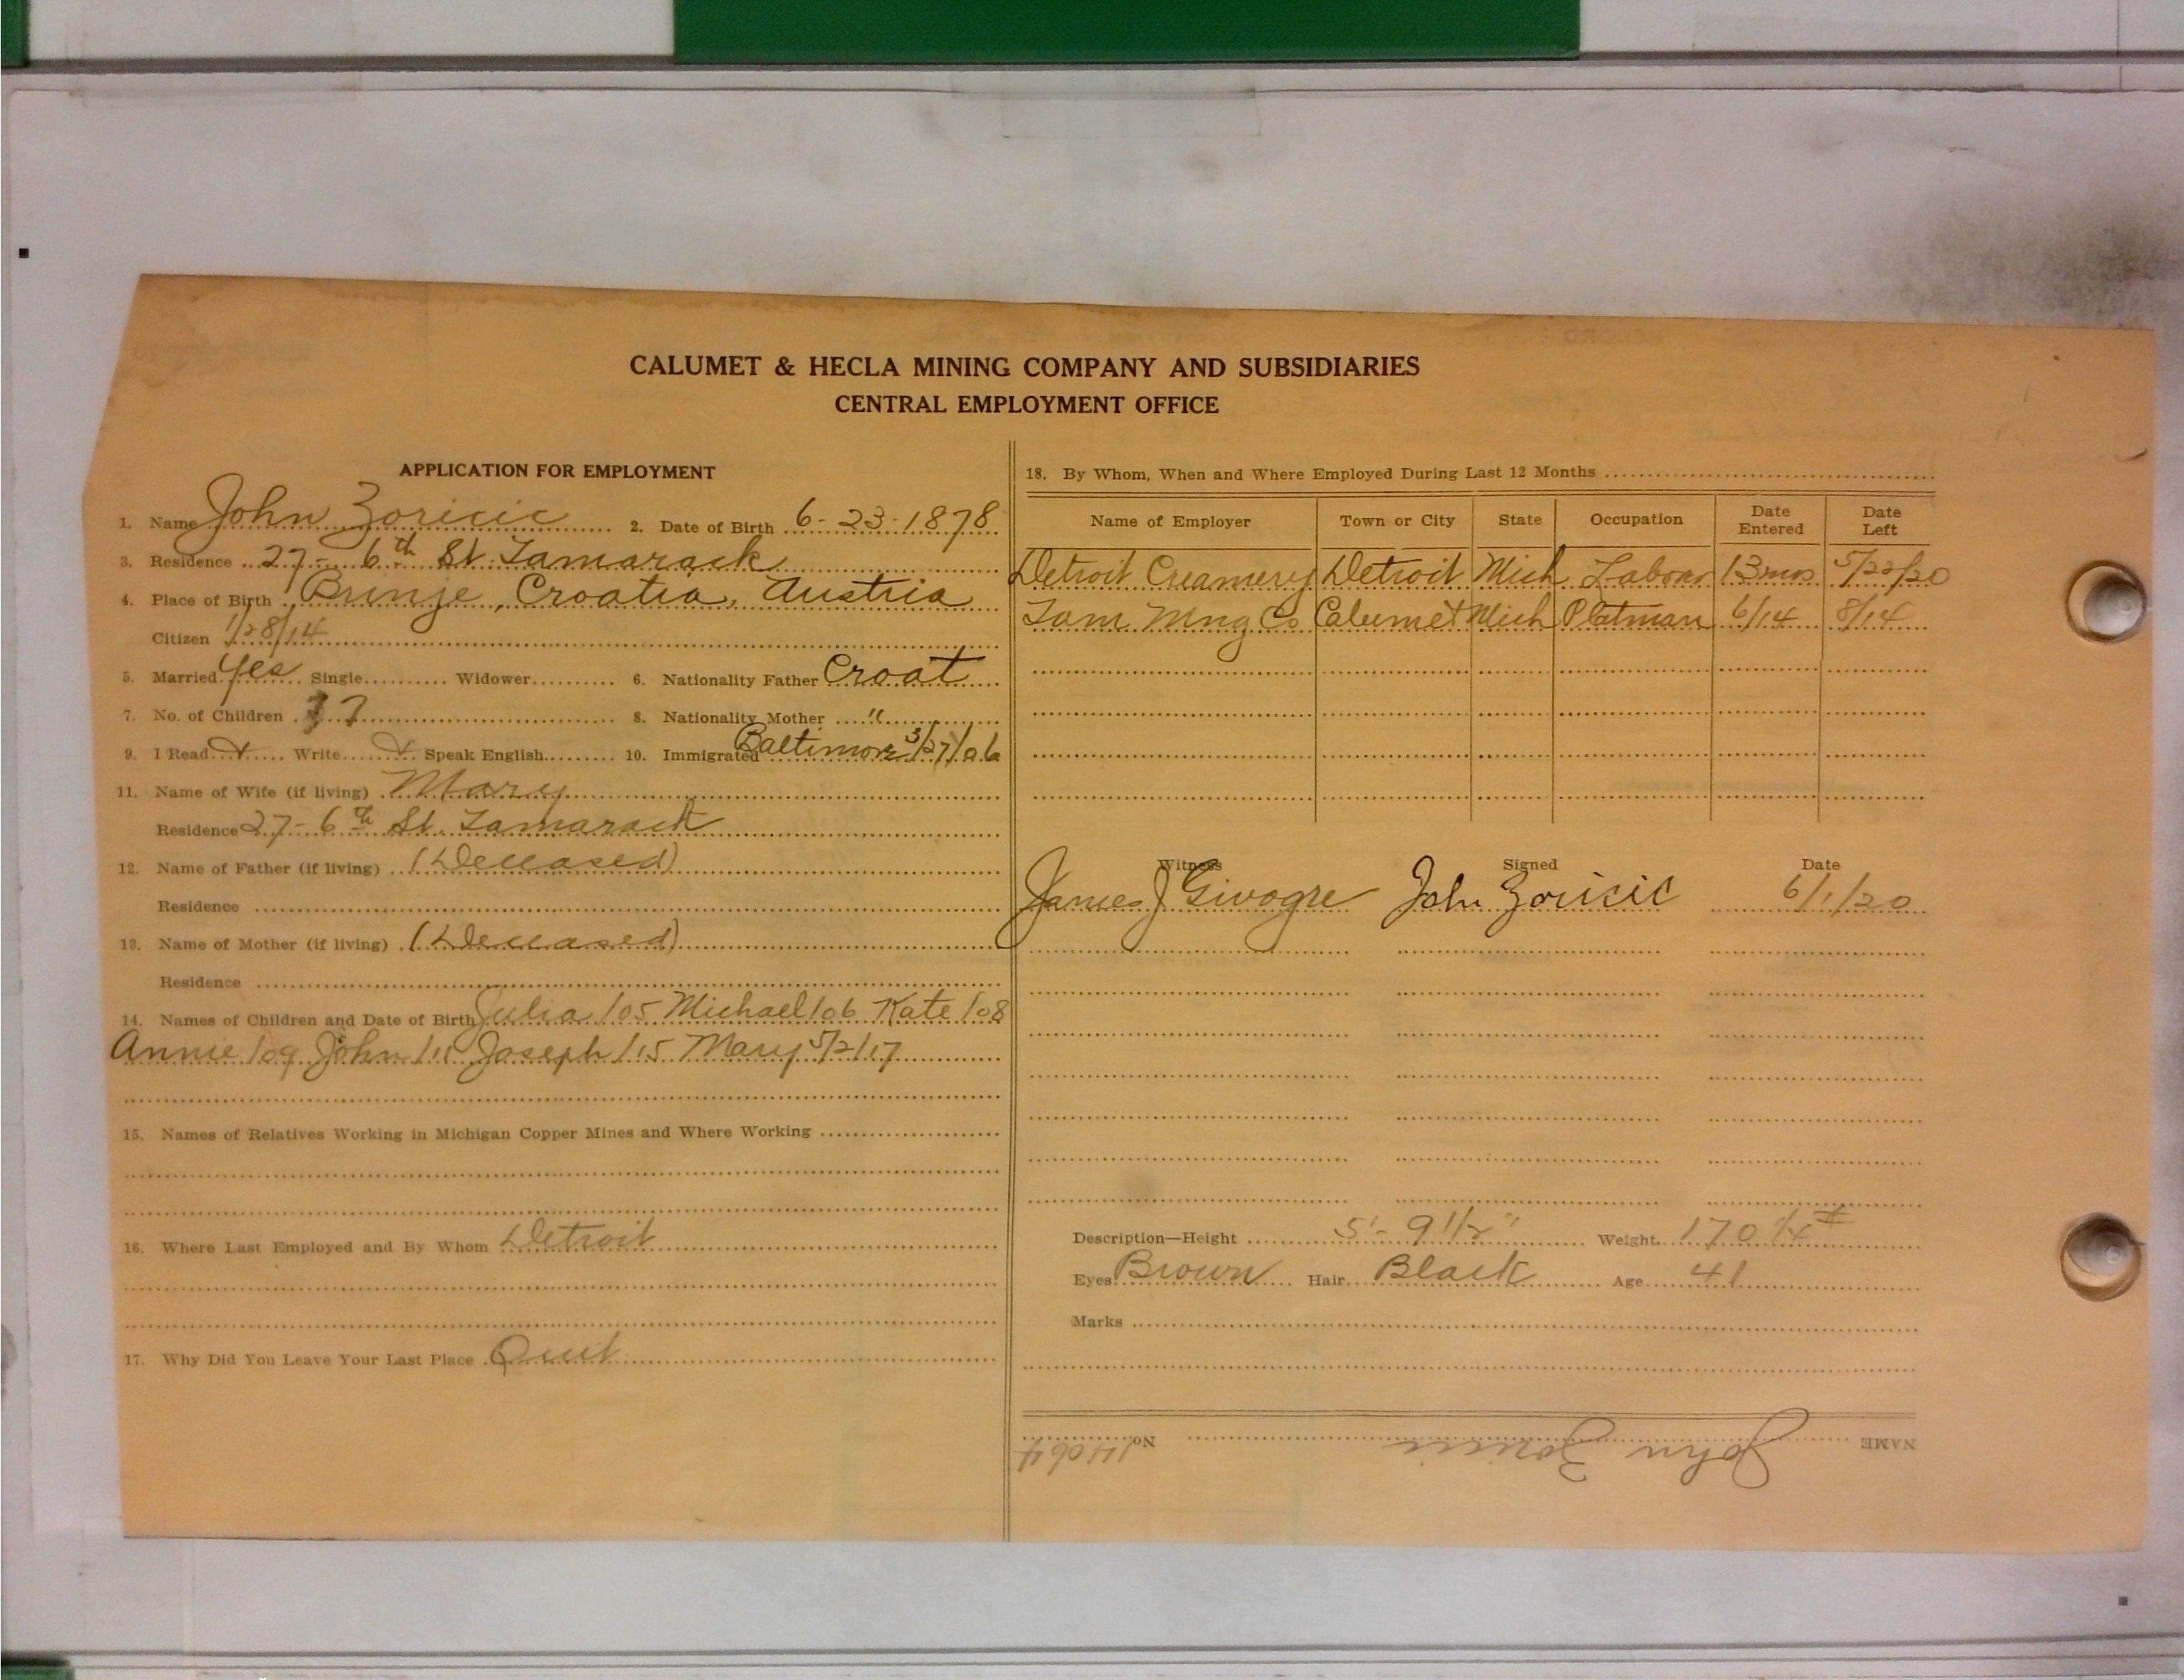 CALUMET & HECLA MINING COMPANY AND SUBSIDIARIES
CENTRAL EMPLOYMENT OFFICE
APPLICATION FOR EMPLOYMENT
1. Name John Zoricic 2. Date of Birth 6-23-1878
3. Residence 27-6th St Tamarack
4. Place of Birth Brinje, Croatia, Austria
Citizen 1/28/14
5. Married Yes Single Widower 6. Nationality Father Croat
7. No. of Children 7
8. Nationality Mother "
9. I Read X Write X Speak English 10. Immigrated Baltimore 3/27/06
11. Name of Wife (if living) Mary
Residence 27-6th St. Tamarack
12. Name of Father (if living) (Deceased)
Residence
13. Name of Mother (if living) (Deceased)
Residence
14. Names of Children and Date of Birth Julia /05 Michael /06 Kate /08
Annie /09 John /11 Joseph /15 Mary 5/2/17
15. Names of Relatives Working in Michigan Copper Mines and Where Working
16. Where Last Employed and By Whom Detroit
17. Why Did You Leave Your Last Place Quit
18. By Whom, When and Where Employed During Last 12 Months
Name of Employer Town or City State Occupation Date Entered Date Left
Detroit Creamery Detroit Mich Labor 13 mos 5/22/20
Tam Mng Co Calumet Mich Platman 6/14 8/14
Witness Signed Date
James J Givogre John Zoricic 6/1/20
Description—Height 5'-9 1/2" Weight 170 1/4 #
Eyes Brown Hair Black Age 41
Marks
NAME John Zoricic No. 14064